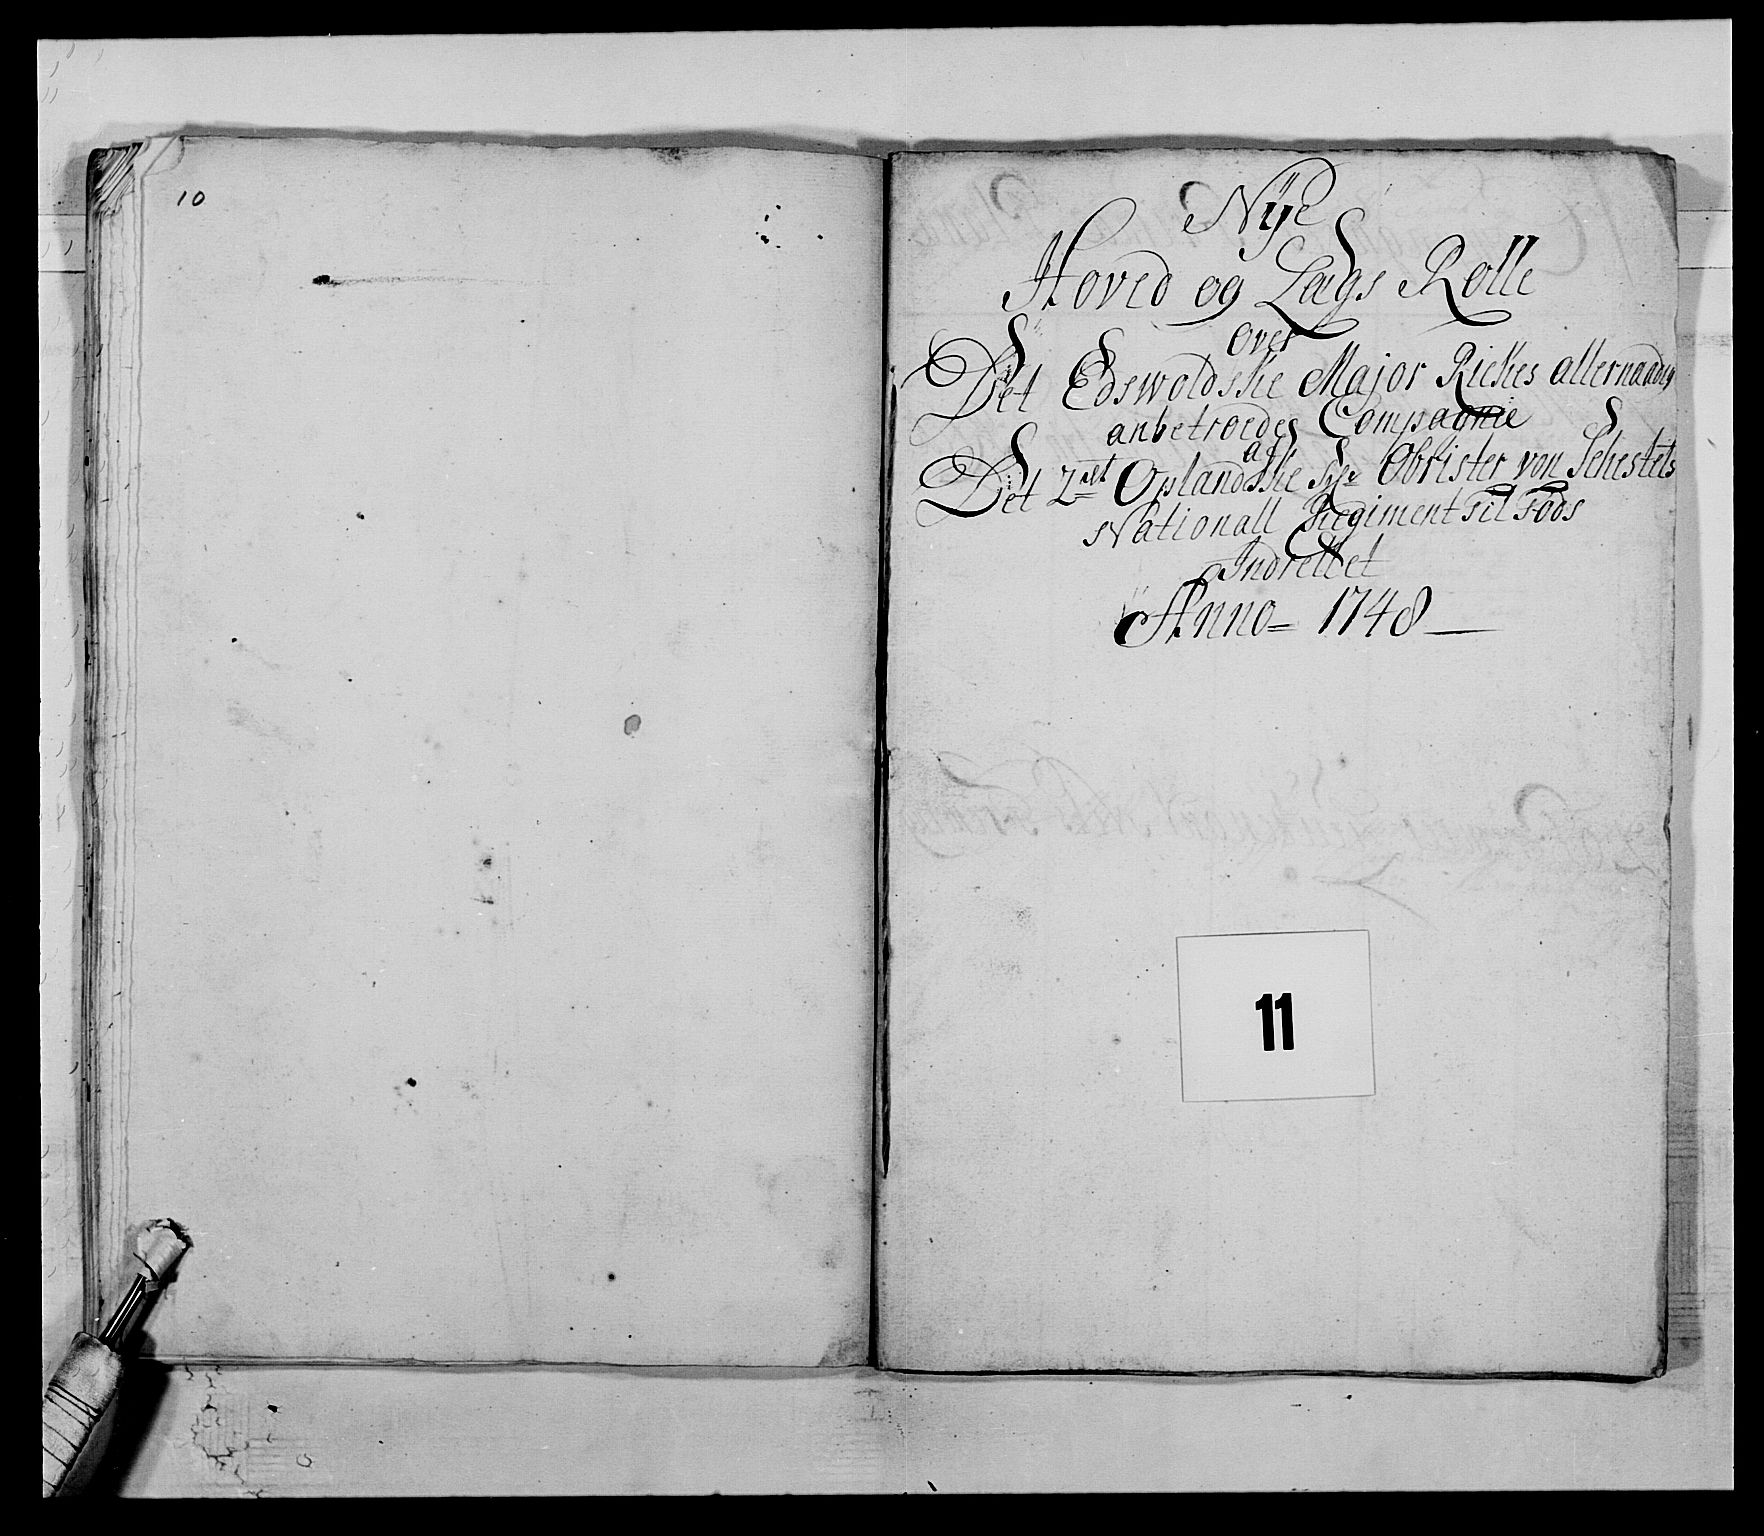 10
Nÿe
Hoved og Lægs Rolle
over
Det Edswoldske Major Rickes allernaadig
anbetroedes Compagnie
af
Det 2det Oplandske Hr Obrister von Sehesteds
Nationall Regiment til Fods
Indrettet
Anno= 1748
11